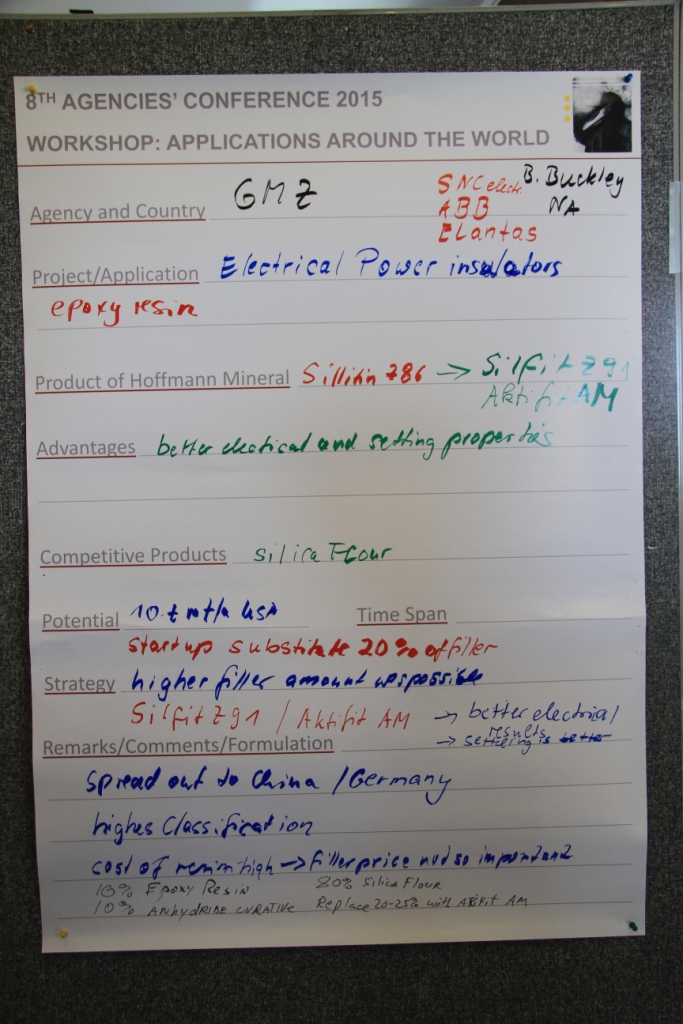 8TH AGENCIES' CONFERENCE 2015
WORKSHOP: APPLICATIONS AROUND THE WORLD
Agency and Country GMZ SNC electr. B. Buckley
ABB NA
Elantas
Project/Application Electrical Power insulators
epoxy resin
Product of Hoffmann Mineral Sillitin Z86 → Silfit Z91
Aktifit AM
Advantages better electical and setting properties
Competitive Products Silica Flour
Potential 10 t mt/a USA Time Span
Startup substitute 20% of filler
Strategy higher filler amount as possible
Silfit Z91 / Aktifit AM → better electrical
results
Remarks/Comments/Formulation → settling is better
Spread out to China / Germany
highes Classification
cost of resin high → filler price not so important
10% Epoxy Resin 80% Silica Flour
10% ANHYDRIDE CURATIVE Replace 20-25% with Aktifit AM